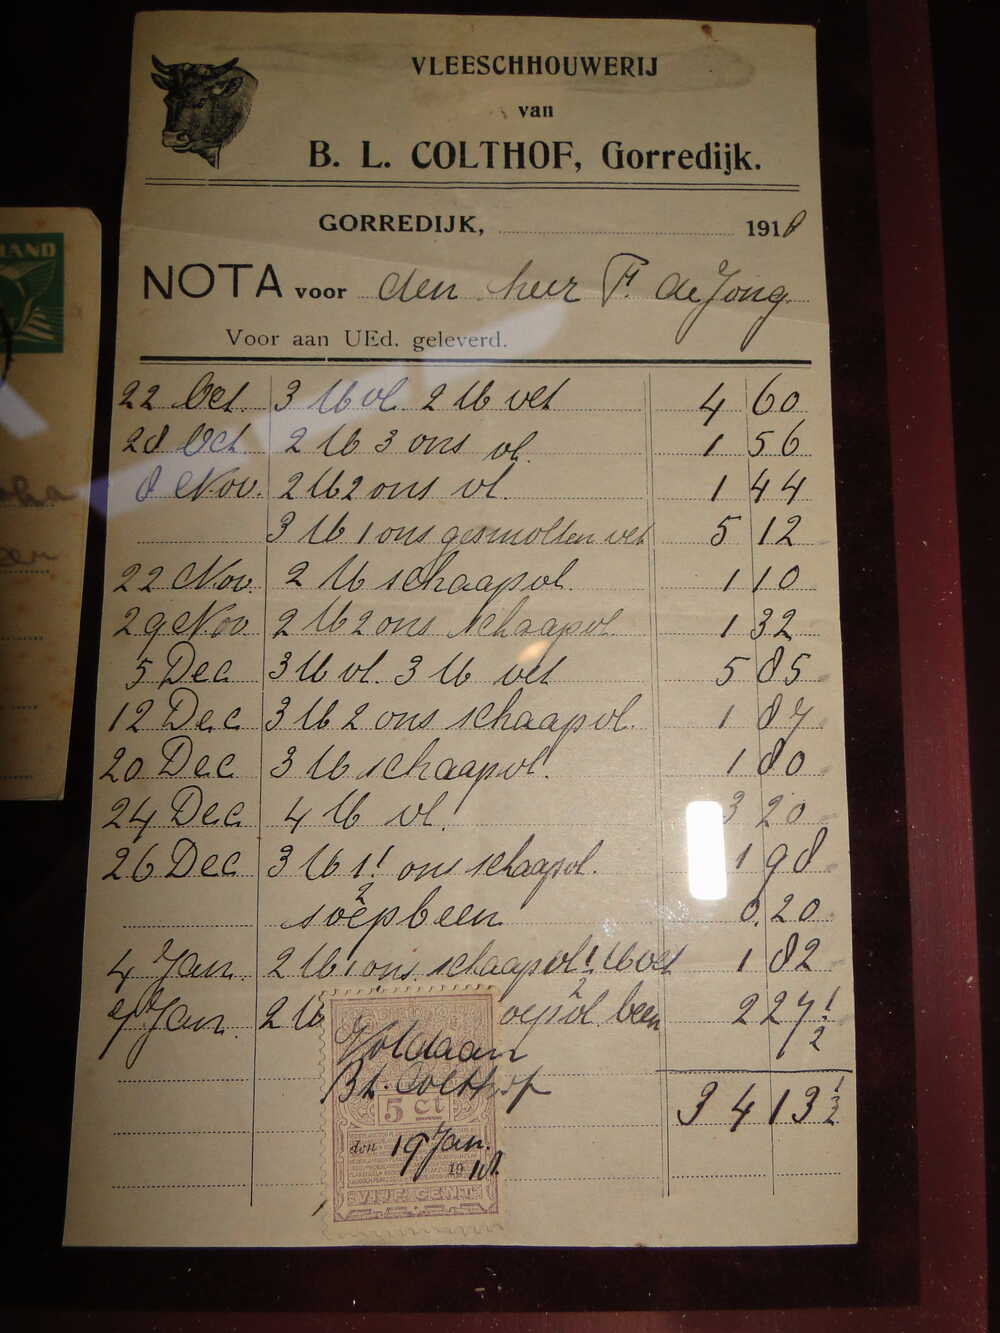 VLEESCHHOUWERIJ
van
B. L. COLTHOF, Gorredijk.
GORREDIJK, 1918
NOTA voor den heer F. de Jong
Voor aan UEd. geleverd.
22 Oct. 3 lb vl 2 lb vet 4 60
28 Oct 2 lb 3 ons vl. 1 56
8 Nov. 2 lb 2 ons vl. 1 44
3 lb 1 ons gesmolten vet 5 12
22 Nov. 2 lb schaapvl. 1 10
29 Nov 2 lb 2 ons schaapvl 1 32
5 Dec 3 lb vl. 3 lb vet 5 85
12 Dec 3 lb 2 ons schaapvl. 1 87
20 Dec 3 lb schaapvl. 1 80
24 Dec 4 lb vl. 3 20
26 Dec 3 lb 1½ ons schaapvl. 1 98
soepbeen 0,20
4 Jan. 2 lb 1 ons schaapvl ½ lb vet 1 82
7 Jan. 2 lb oepvl. been 2 27½
Voldaan
B.L. Colthof 34 13½
5 ct
den 19 Jan.
1918
VIJF CENT
LAND